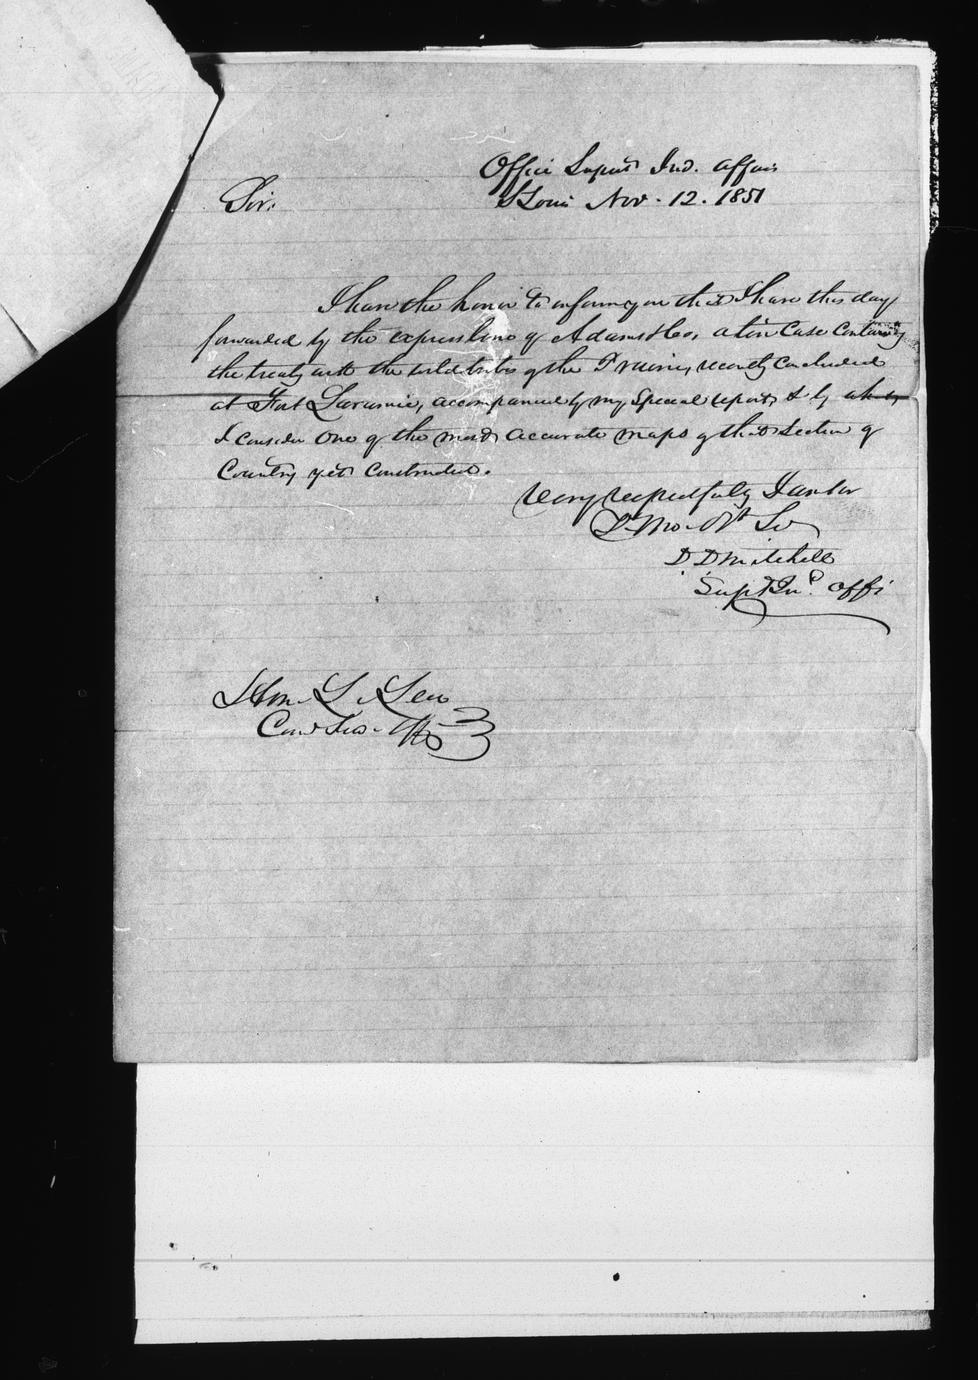 Office Supt Ind. Affairs
St Louis Nov. 12. 1851
Sir.
I have the honor to inform you that I have this day
forwarded by the express line of Adams & Co, a tin Case Containing
the treaty with the wild tribes of the Prairie, recently Concluded
at Fort Laramie, accompanied by my Special report, & by what
I consider one of the most accurate maps of that Section of
Country yet Constructed.
Very respectfully I am Sir
Yr Mo. Obt Sv
D D Mitchell
Supt Ind. Affs
Hon L Lea
Com